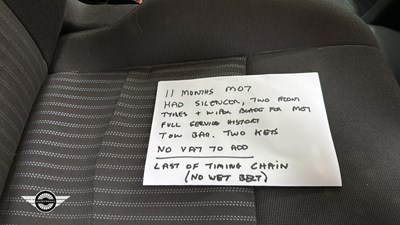 11 MONTHS MOT
HAD SILENCER, TWO FRONT
TYRES + WIPER BLADES FOR MOT
FULL SERVICE HISTORY
TOW BAR. TWO KEYS
NO VAT TO ADD
LAST OF TIMING CHAIN
(NO WET BELT)